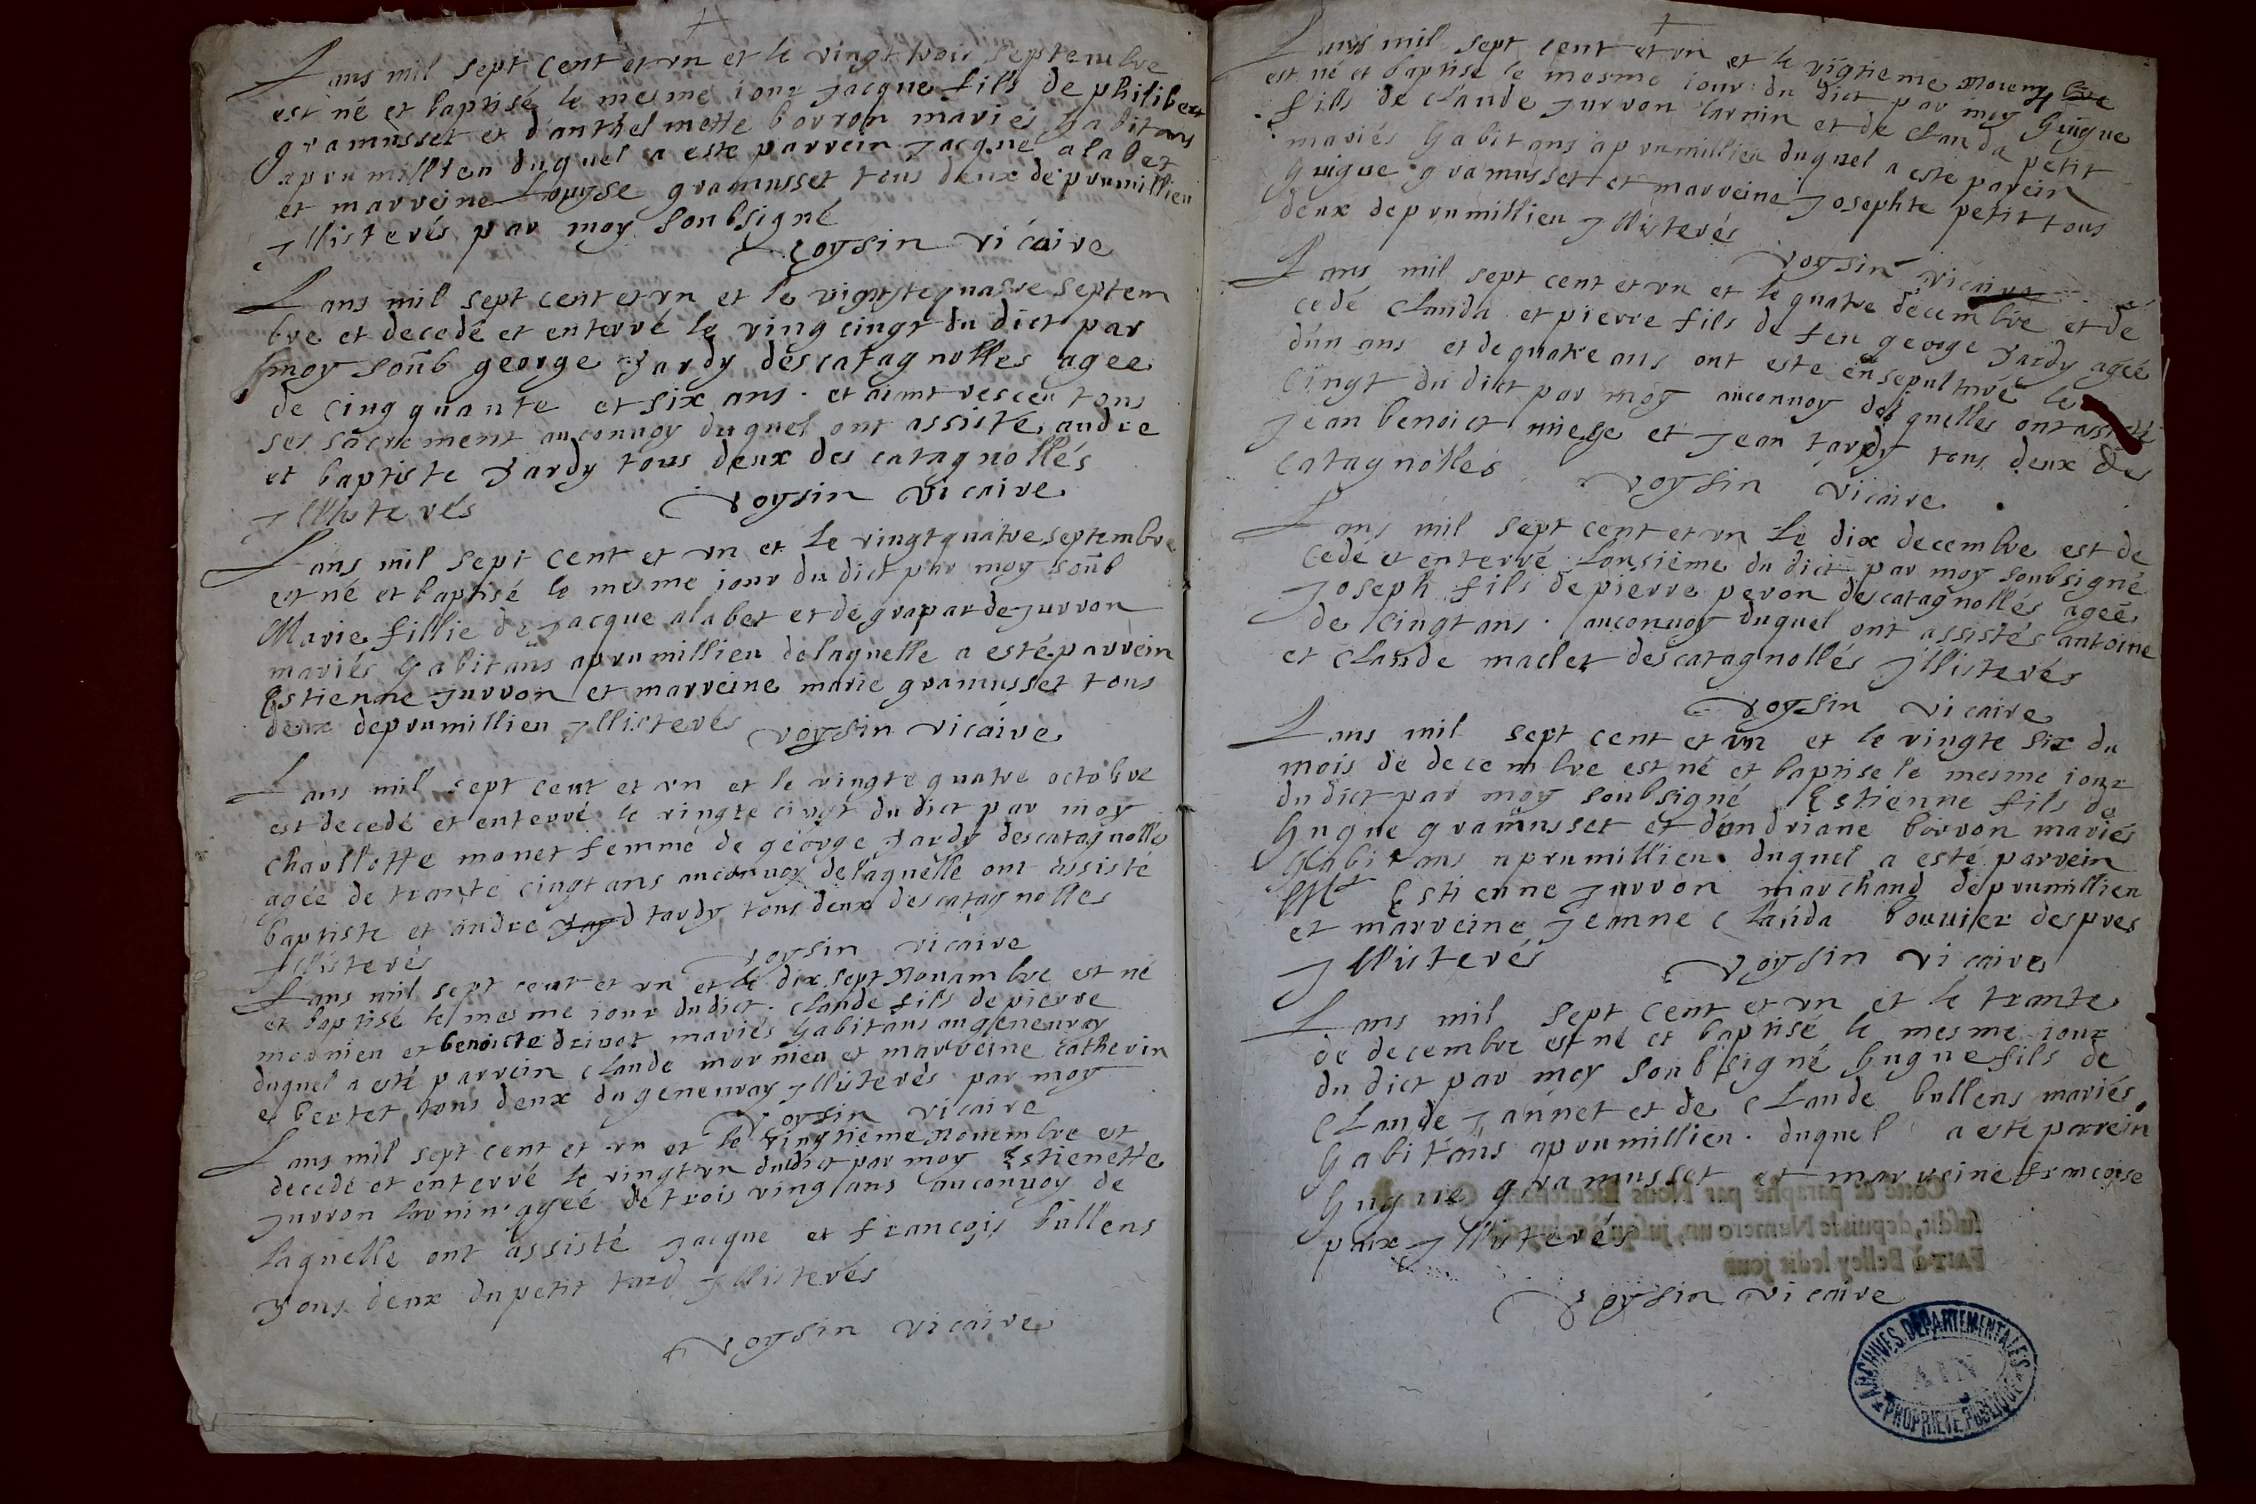 Lans mil sept cent et vn et le vingt trois septembre
est né et baptisé le mesme iour Jacque fils de philibert
gramusset et d'anthelmette borron mariés habitans
a prumillieu duquel a esté parrein Jacque alabet
et marreine Louyse gramusset tous deux de prumillieu
Jllisterés par moy soubsigné
Voysin vicaire
Lans mil sept cent et vn et le vingtequatre septem
bre et decedé et enterré le ving cinqt du dict par
moy soub george Tardy des catagnolles agee
de cinqquante et six ans . et aiant resceu tous
ses sacrement au conuoy duquel ont assisté andre
et baptiste Tardy tous deux des catagnollés
Jllisterés Voysin vicaire
Lans mil sept cent et vn et le vingt quatre septembre
est né et baptisé le mesme iour du dict par moy soub
Marie fillie de Jacque alabet et de graparde Jurron
mariés habitans a prumillieu de laquelle a esté parrein
Estienne Jurron et marreine marie gramusset tous
deux de prumillieu Jllisterés Voysin vicaire
Lans mil sept cent et vn et le vingte quatre octobre
est decedé et enterré le vingte cinqt du dict par moy
Charllotte monet femme de géorge Tardy des catagnolle
agée de trante cinqt ans au conuoy de laquelle ont assisté
baptiste et andre tardy tous deux des catagnolles
Jllisterés Voysin vicaire
Lans mil sept cent et vn et le dix sept Nouambre est né
et baptisé le mesme iour du dict . claude fils de pierre
et benoiste mariés habitans au geneuray
duquel a esté parrein claude mornieu et marreine catherin
e bertet tous deux du geneuray Jllisterés par moy
Voysin vicaire
Lans mil sept cent et vn et le vingtieme Nouembre et
decedé et enterré le vingt vn du dict par moy Estienette
Jurron larnin agée de trois vingt ans au conuoy de
laquelle ont assisté Jacque et françois bullens
Tous deux du petit tard Jllisterés
Voysin vicaire
Lans mil sept cent et vn et le vigtieme Nouembre
est né et baptise le mesme iour du dict par moy Guigue
fills de claude Jurron larnin et de clauda petit
mariés habitans a prumillieu duquel a este parein
Guigue gramusset et marreine Josephte petit tous
deux de prumillieu Jllisterés
Voysin vicaire
Lans mil sept cent et vn et le quatre decembre et dé
cedé clauda et pierre fils de feu george Tardy agée
d'un ans et de quatre ans ont este ensepulturé le
cinqt du dict par moy au conuoy desquelles ont assisté
Jean benoict et Jean tardy tous deux des
catagnolles Voysin vicaire
Lans mil sept cent et vn Le dix decembre est de
cedé et enterré Lonsieme du dict par moy soubsigné
Joseph fils de pierre peron des catagnollés agée
de cinqt ans . au conuoy duquel ont assistés antoine
et claude maclet des catagnollés Jllisterés
Voysin vicaire
Lans mil sept cent et vn et le vingte six du
mois de decembre est né et baptise le mesme iour
du dict par moy soubsigné Estienne fils de
hugue gramusset et d'andriane borron mariés
habitans a prumillieu duquel a esté parrein
Mre Estienne Jurron marchand de prumillieu
et marreine Jeanne clauda bouuier despres
Jllisterés Voysin vicaire
Lans mil sept cent et vn et le trante
de decembre est né et baptisé le mesme iour
du dict par moy soubsigné hugue fils de
claude Jannet et de claude bullens mariés
habitans a prumillieu . duquel a esté parrein
hugue gramusset et marreine francoise
paix Jllisterés
Voysin vicaire
ARCHIVES DÉPARTEMENTALES
AIN
PROPRIÉTÉ PUBLIQUE